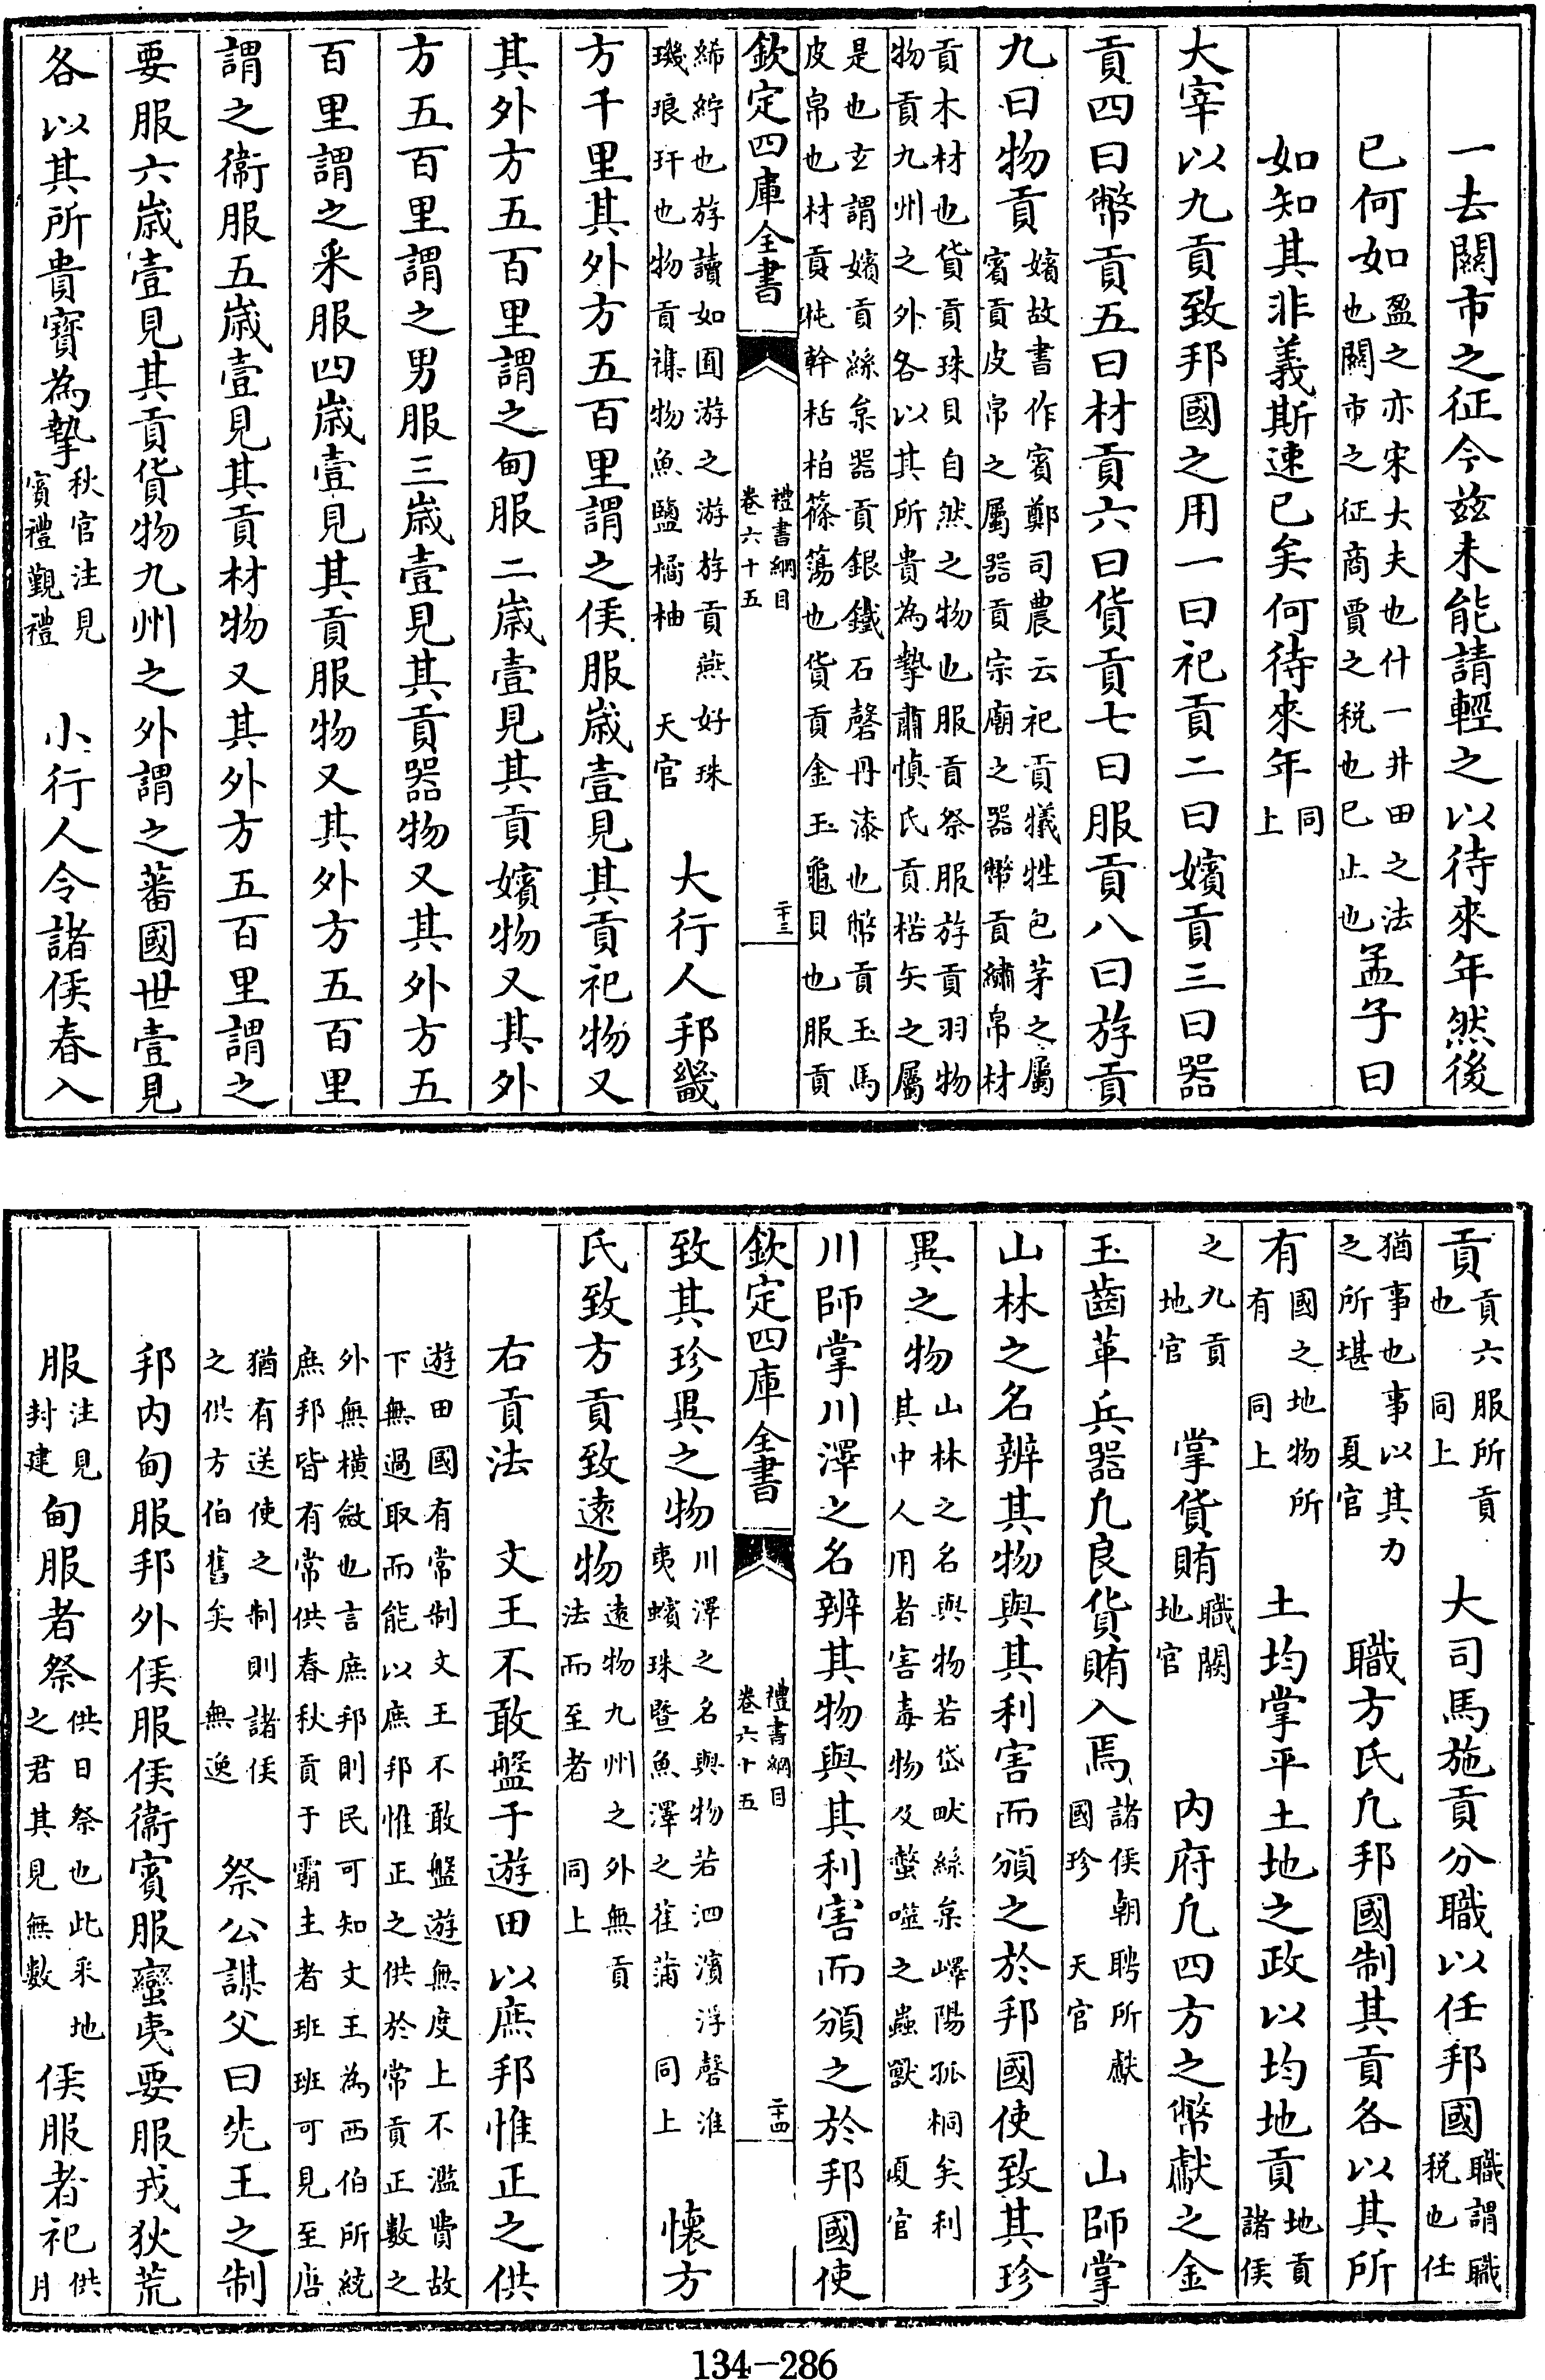 一去關市之征今兹未能請輕之以待來年然後
已何如盈之亦宋大夫也什一井田之法也關市之征商賈之税也已止也孟子曰
如知其非義斯速已矣何待來年同上
大宰以九貢致邦國之用一曰祀貢二曰嬪貢三曰器
貢四曰幣貢五曰材貢六曰貨貢七曰服貢八曰斿貢
九曰物貢嬪故書作賓鄭司農云祀貢犧牲包茅之屬賓貢皮帛之屬器貢宗廟之器幣貢繡帛材
貢木材也貨貢珠貝自然之物也服貢祭服斿貢羽物物貢九州之外各以其所貴為摯肅慎氏貢楛矢之屬
是也玄謂嬪貢絲枲器貢銀鐵石磬丹漆也幣貢玉馬皮帛也材貢杶幹栝柏篠簜也貨貢金玉龜貝也服貢
欽定四庫全書 禮書綱目 卷六十五 二十三
絺紵也斿讀如囿游之游斿貢燕好珠璣琅玕也物貢襍物魚鹽橘柚 天官 大行人邦畿
方千里其外方五百里謂之侯服嵗壹見其貢祀物又
其外方五百里謂之甸服二嵗壹見其貢嬪物又其外
方五百里謂之男服三嵗壹見其貢器物又其外方五
百里謂之采服四嵗壹見其貢服物又其外方五百里
謂之衞服五嵗壹見其貢材物又其外方五百里謂之
要服六嵗壹見其貢貨物九州之外謂之蕃國世壹見
各以其所貴寳為摯秋官注見賓禮覲禮 小行人令諸侯春入
貢貢六服所貢也 同上 大司馬施貢分職以任邦國職謂職税也任
猶事也事以其力之所堪 夏官 職方氏凡邦國制其貢各以其所
有國之地物所有 同上 土均掌平土地之政以均地貢地貢諸侯
之九貢 地官 掌貨賄職闕 地官 内府凡四方之幣獻之金
玉齒革兵器凡良貨賄入焉諸侯朝聘所獻國珍 天官 山師掌
山林之名辨其物與其利害而頒之於邦國使致其珍
異之物山林之名與物若岱畎絲枲嶧陽孤桐矣利其中人用者害毒物及螫噬之蟲獸 夏官
川師掌川澤之名辨其物與其利害而頒之於邦國使
欽定四庫全書 禮書綱目 卷六十五 二十四
致其珍異之物川澤之名與物若泗濱浮磬淮夷蠙珠曁魚澤之萑蒲 同上 懷方
氏致方貢致逺物逺物九州之外無貢法而至者 同上
右貢法 文王不敢盤于遊田以庶邦惟正之供
遊田國有常制文王不敢盤遊無度上不濫費故下無過取而能以庶邦惟正之供於常貢正數之
外無横斂也言庶邦則民可知文王為西伯所統庶邦皆有常供春秋貢于霸主者班班可見至唐
猶有送使之制則諸侯之供方伯舊矣 無逸 祭公謀父曰先王之制
邦内甸服邦外侯服侯衞賓服蠻夷要服戎狄荒
服注見封建甸服者祭供日祭也此采地之君其見無數 侯服者祀供月
134-286